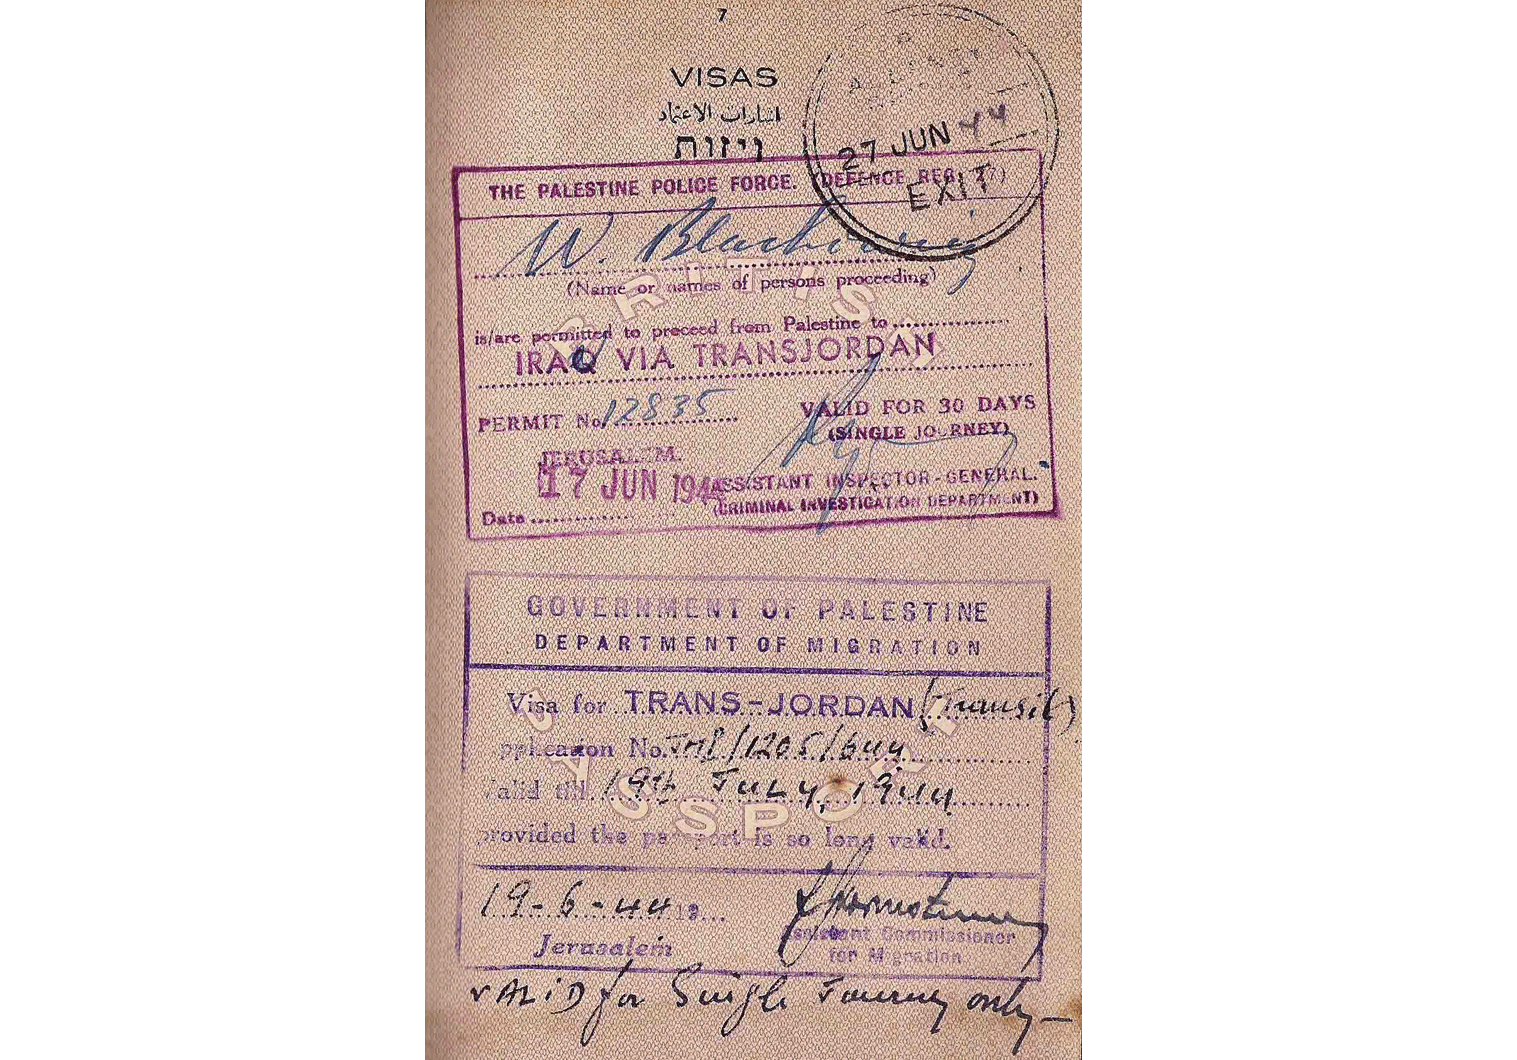 7
VISAS
اشارات الاعتماد
ויזות
27 JUN 44
EXIT
THE PALESTINE POLICE FORCE. (DEFENCE REG.
W.
(Name or names of persons proceeding)
is/are permitted to proceed from Palestine to
IRAQ VIA TRANSJORDAN
PERMIT No. 12835
VALID FOR 30 DAYS
(SINGLE JOURNEY)
JERUSALEM.
17 JUN 1944
Date
ASSISTANT INSPECTOR-GENERAL.
(CRIMINAL INVESTIGATION DEPARTMENT)
BRITISH
GOVERNMENT OF PALESTINE
DEPARTMENT OF MIGRATION
Visa for TRANS-JORDAN (Transit)
Application No. /1205/644
Valid till 19th JULY, 1944
provided the passport is so long valid.
PASSPORT
19-6-44 19
Jerusalem
Assistant Commissioner
for Migration
VALID for Single Journey only—